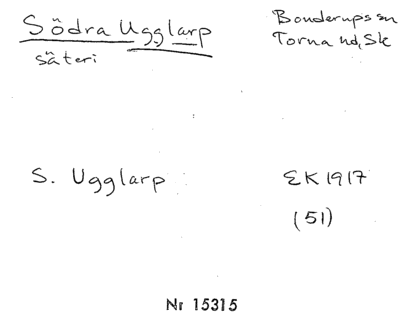 Södra Ugglarp
säteri
Bonderups sn
Torna hd, Sk
S. Ugglarp
EK 1917
(51)
Nr 15315